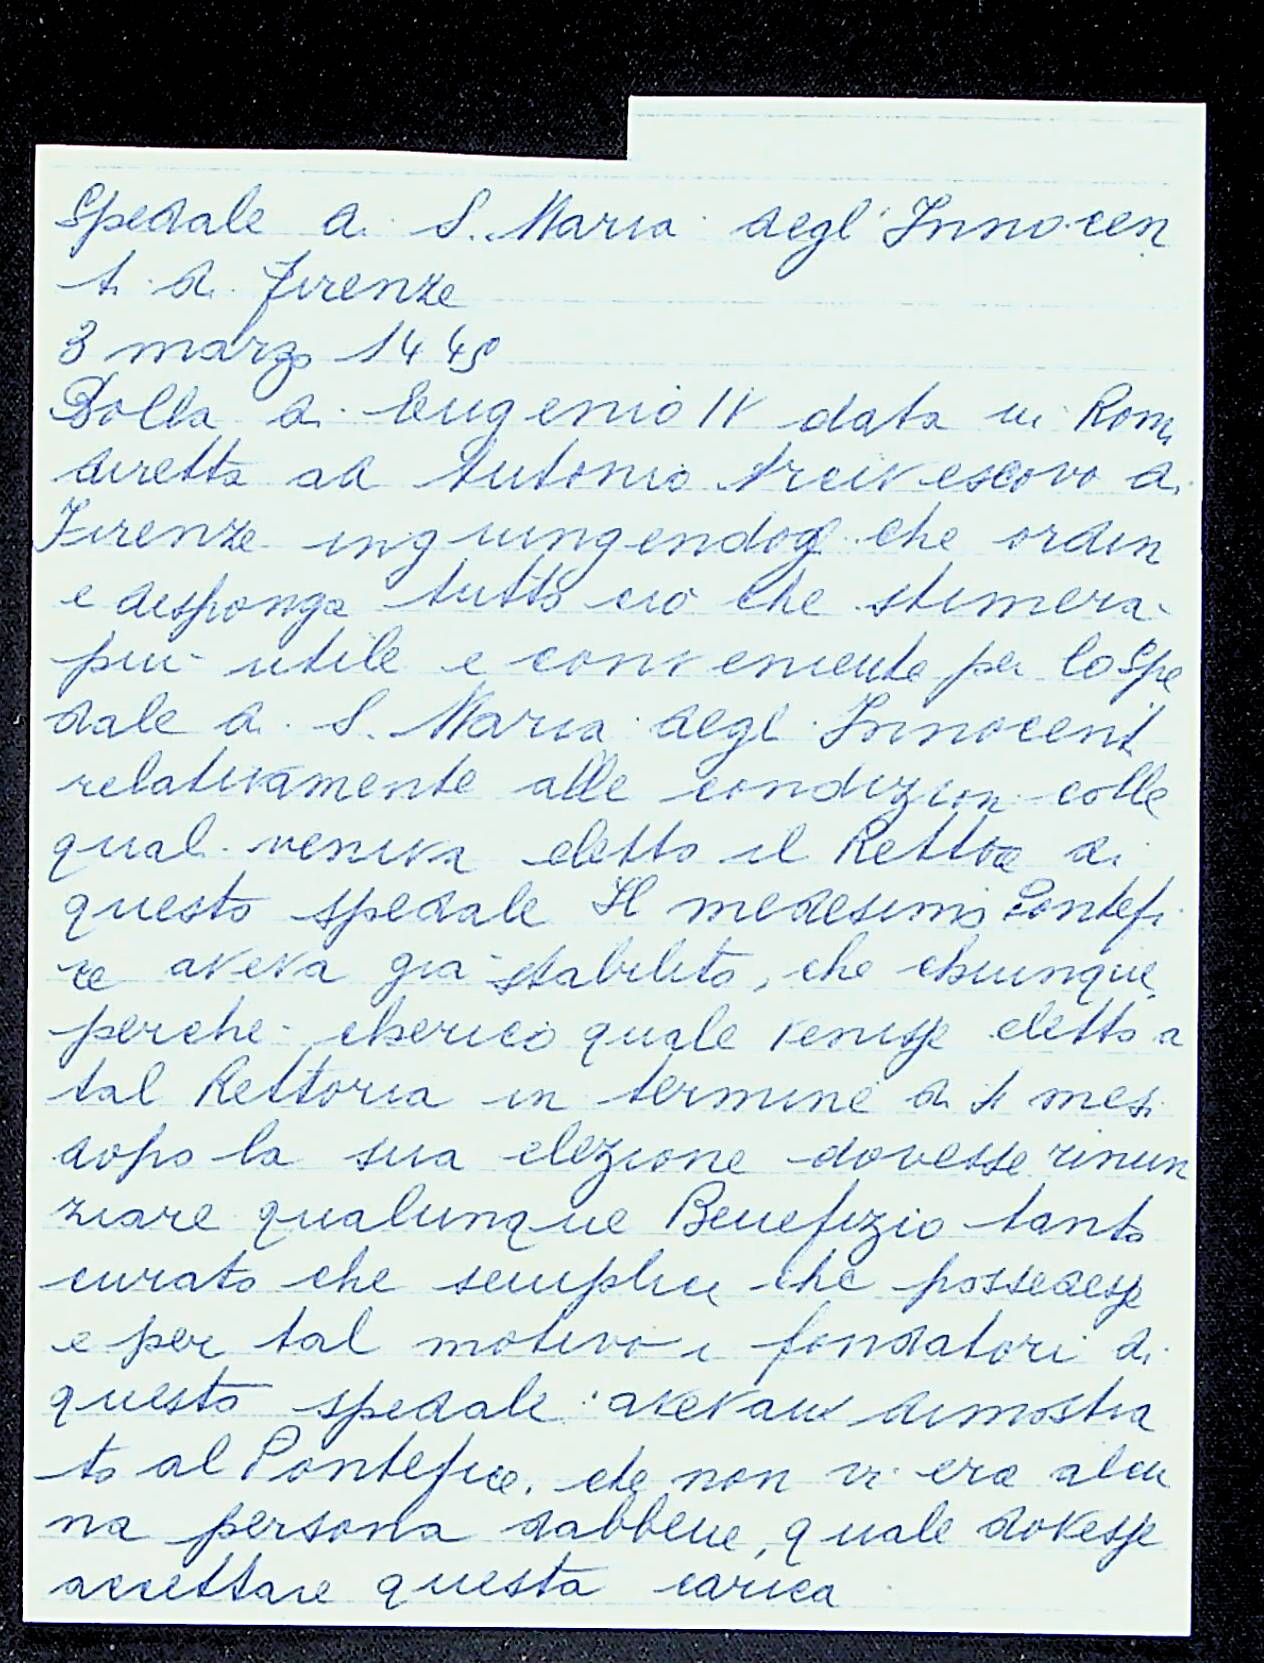 Spedale di S. Maria degl'Innocen
ti di Firenze
3 marzo 1445
Bolla di Eugenio IV data in Roma
diretta ad Antonio Arcivescovo di
Firenze ingiungendogli che ordini
e disponga tutto ciò che stimerà
più utile e conveniente per lo Spe
dale di S. Maria degl'Innocenti
relativamente alle condizioni colle
quali veniva eletto il Rettore di
questo spedale Il medesimo Pontefi
ce aveva già stabilito, che chiunque
perchè cherico quale venisse eletto a
tal Rettoria in termine di 4 mesi
dopo la sua elezione dovesse rinun
ziare qualunque Benefizio tanto
curato che semplice che possedesse
e per tal motivo i fondatori di
questo spedale avevano dimostra
to al Pontefice, che non vi era alcu
na persona dabbene, quale dovesse
accettare questa carica